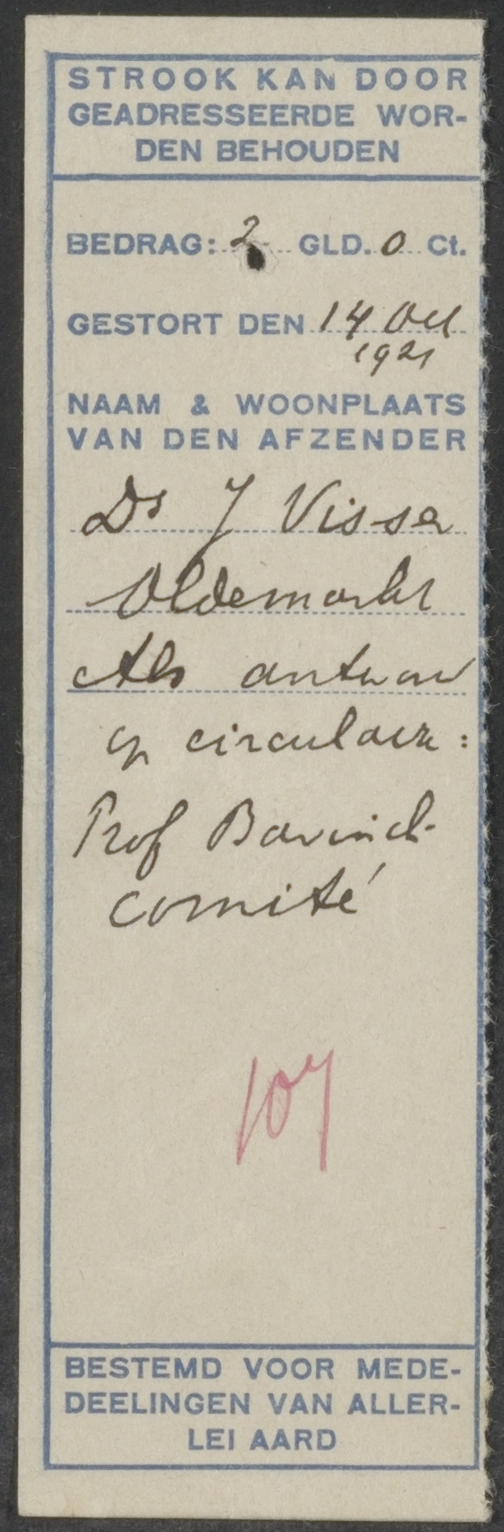 STROOK KAN DOOR
GEADRESSEERDE WOR-
DEN BEHOUDEN
BEDRAG: 2 GLD. 0 Ct.
GESTORT DEN 14 Oct
1921
NAAM & WOONPLAATS
VAN DEN AFZENDER
Ds J Visser
Oldemarkt
Als antwoord
op circulaire:
Prof Bavinck-
comité
107
BESTEMD VOOR MEDE-
DEELINGEN VAN ALLER-
LEI AARD